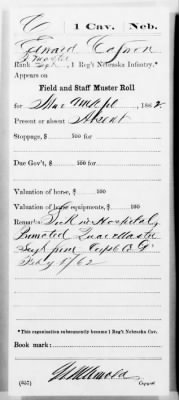 C | 1 Cav. | Neb.
Edward
Q Master
Rank Sergt, 1 Reg't Nebraska Infantry,*
Appears on
Field and Staff Muster Roll
for Mar and Apl, 1862
Present or absent Absent
Stoppage, $ 100 for
Due Gov't, $ 100 for
Valuation of horse, $ 100
Valuation of horse equipments, $ 100
Remarks: Sick in Hospital,
Promoted Quar Master
Sergt from Corpl Co G
Feby 1/62
*This organization subsequently became 1 Reg't Nebraska Cav.
Book mark:
Arnold
(857) Copyist